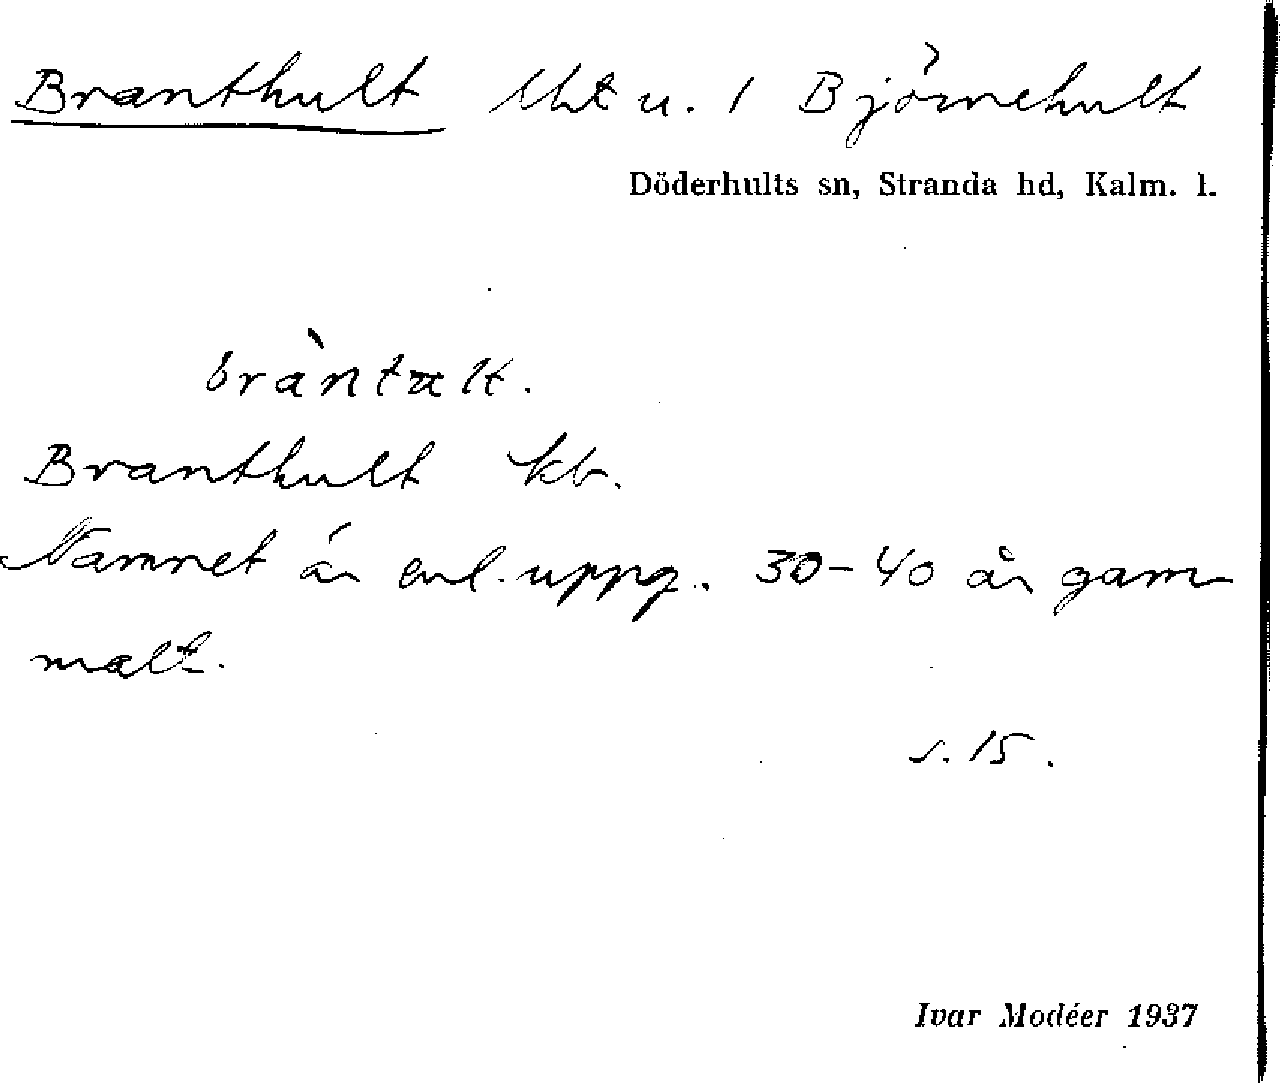 Branthult lht u. 1 Björnehult
Döderhults sn, Stranda hd, Kalm. l.
bràntalt.
Branthult kb.
Namnet är enl. uppg. 30-40 år gam
malt.
s. 15.
Ivar Modéer 1937